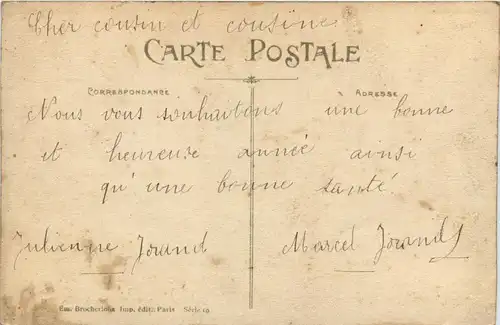 Cher cousin et cousine
CARTE POSTALE
CORRESPONDANCE
ADRESSE
Nous vous souhaitons une bonne
et heureuse année ainsi
qu'une bonne santé.
Julienne
Marcel
Em. Brocherioux Imp. édit. Paris Série 19